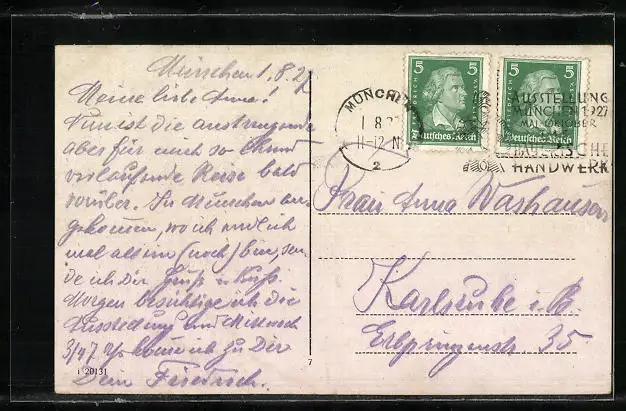 München 1.8.27
Meine liebe Anna!
Nun ist die anstrengende
aber für mich so
verlaufende Reise bald
vorüber. In München an-
gekommen, wo ich endlich
mal allein (noch) bin, sen-
de ich Dir Gruß u. Kuß.
Morgen besichtige ich die
Ausstellung und Mittwoch
3/47 komme ich zu Dir
Dein Friedrich.
i 20131
7
5 5
FRIEDRICH
Deutsches Reich Deutsches Reich
MÜNCHEN
1.8.27
11-12 N
2
AUSSTELLUNG
MÜNCHEN 1927
OKTOBER
BAYERISCHE
HANDWERK
Frau Anna
Karlsruhe i. B.
Erbprinzenstr. 35